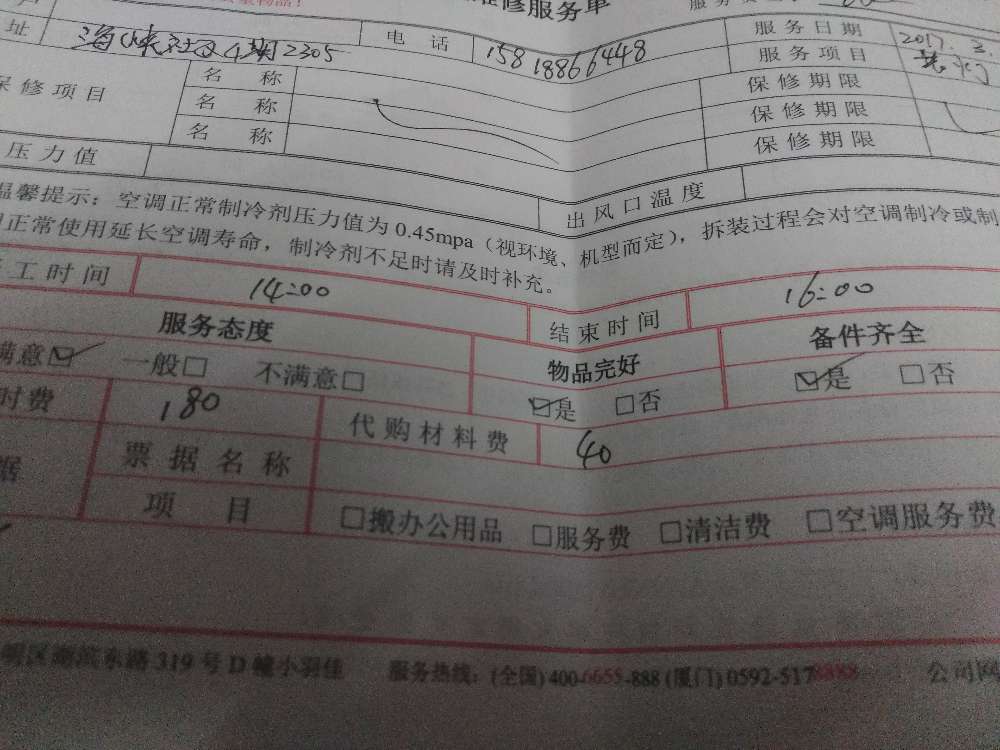 维修服务单
址 海峡社区4期2305 电话 15818866448 服务日期 2017.3.
保修项目 名称 服务项目
名称 保修期限
名称 保修期限
保修期限
压力值 出风口温度
温馨提示：空调正常制冷剂压力值为0.45mpa（视环境、机型而定），拆装过程会对空调制冷或制
正常使用延长空调寿命，制冷剂不足时请及时补充。
工时间 14:00 结束时间 16:00
服务态度 物品完好 备件齐全
满意☑ 一般□ 不满意□ ☑是 □否 ☑是 □否
时费 180 代购材料费 40
据 票据名称
项目 □搬办公用品 □服务费 □清洁费 □空调服务费
明区湖滨东路319号D幢小羽佳 服务热线：(全国)400-6655-888(厦门)0592-5178888 公司网